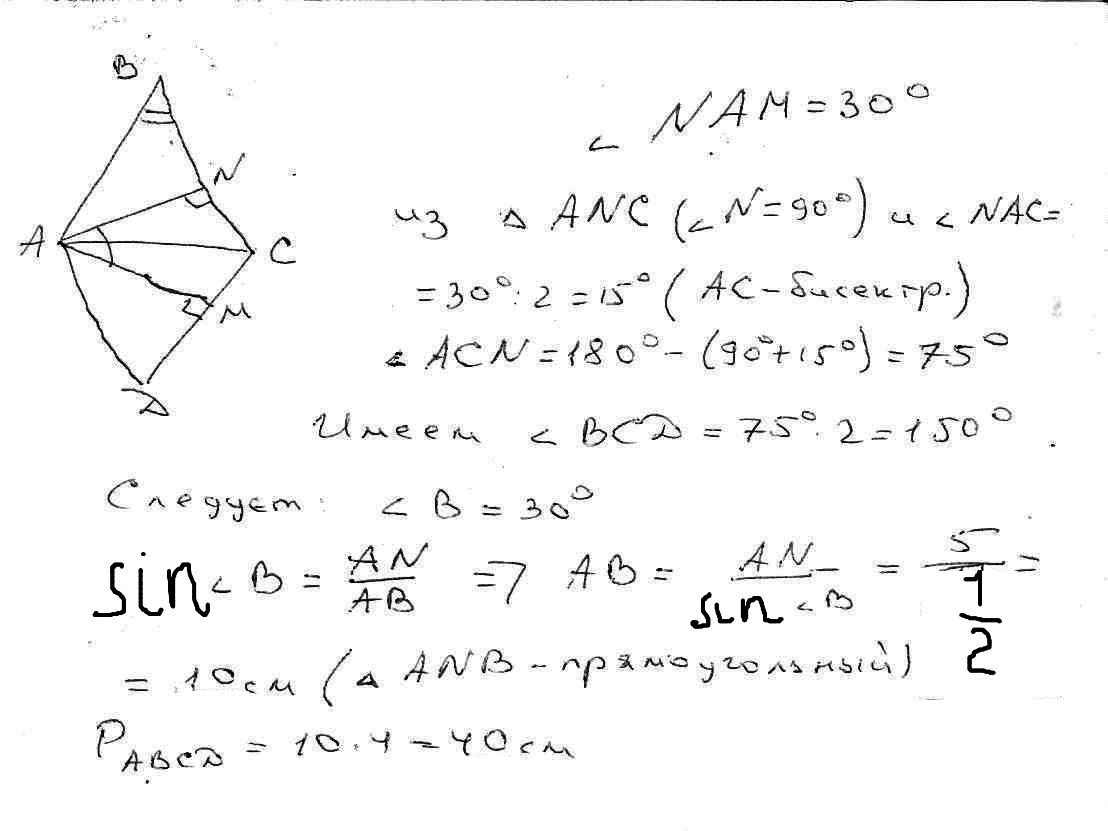 B
N
A
C
M
D
∠ NAM = 30°
из △ ANC (∠ N = 90°) и ∠ NAC =
= 30° : 2 = 15° ( AC - бисектр.)
∠ ACN = 180° - (90° + 15°) = 75°
Имеем ∠ BCD = 75° · 2 = 150° .
Следует: ∠ B = 30°
sin ∠ B = AN/AB => AB = AN/sin ∠ B = 5/(1/2) =
= 10 см (△ ANB - прямоугольный)
P ABCD = 10 · 4 = 40 см